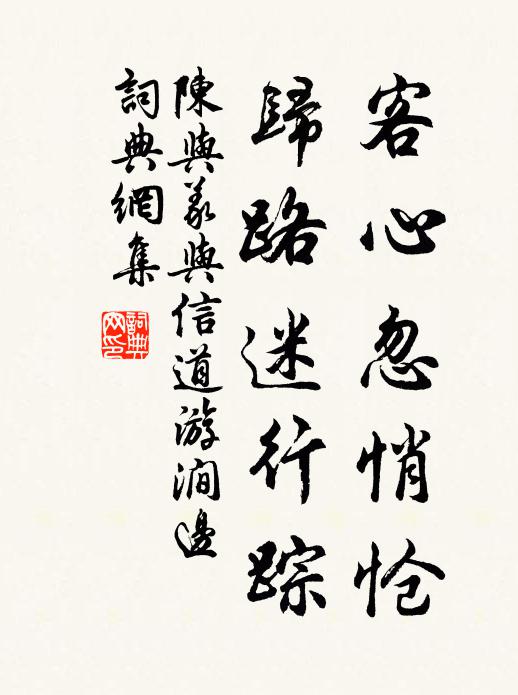 客心忽悄怆
歸路迷行踪
陳與義與信道游澗邊
詞典網集
詞典網印